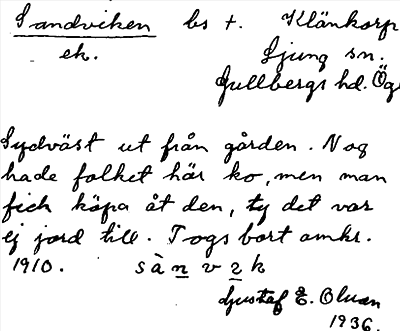 Sandviken bs t. Klänkorp
ek. Ljung sn.
Gullbergs hd. Ög
Sydväst ut från gården. Nog
hade folket här ko, men man
fick köpa åt den, ty det var
ej jord till. Togs bort omkr.
1910. sànvzk
Gustaf E. Olson
1936.